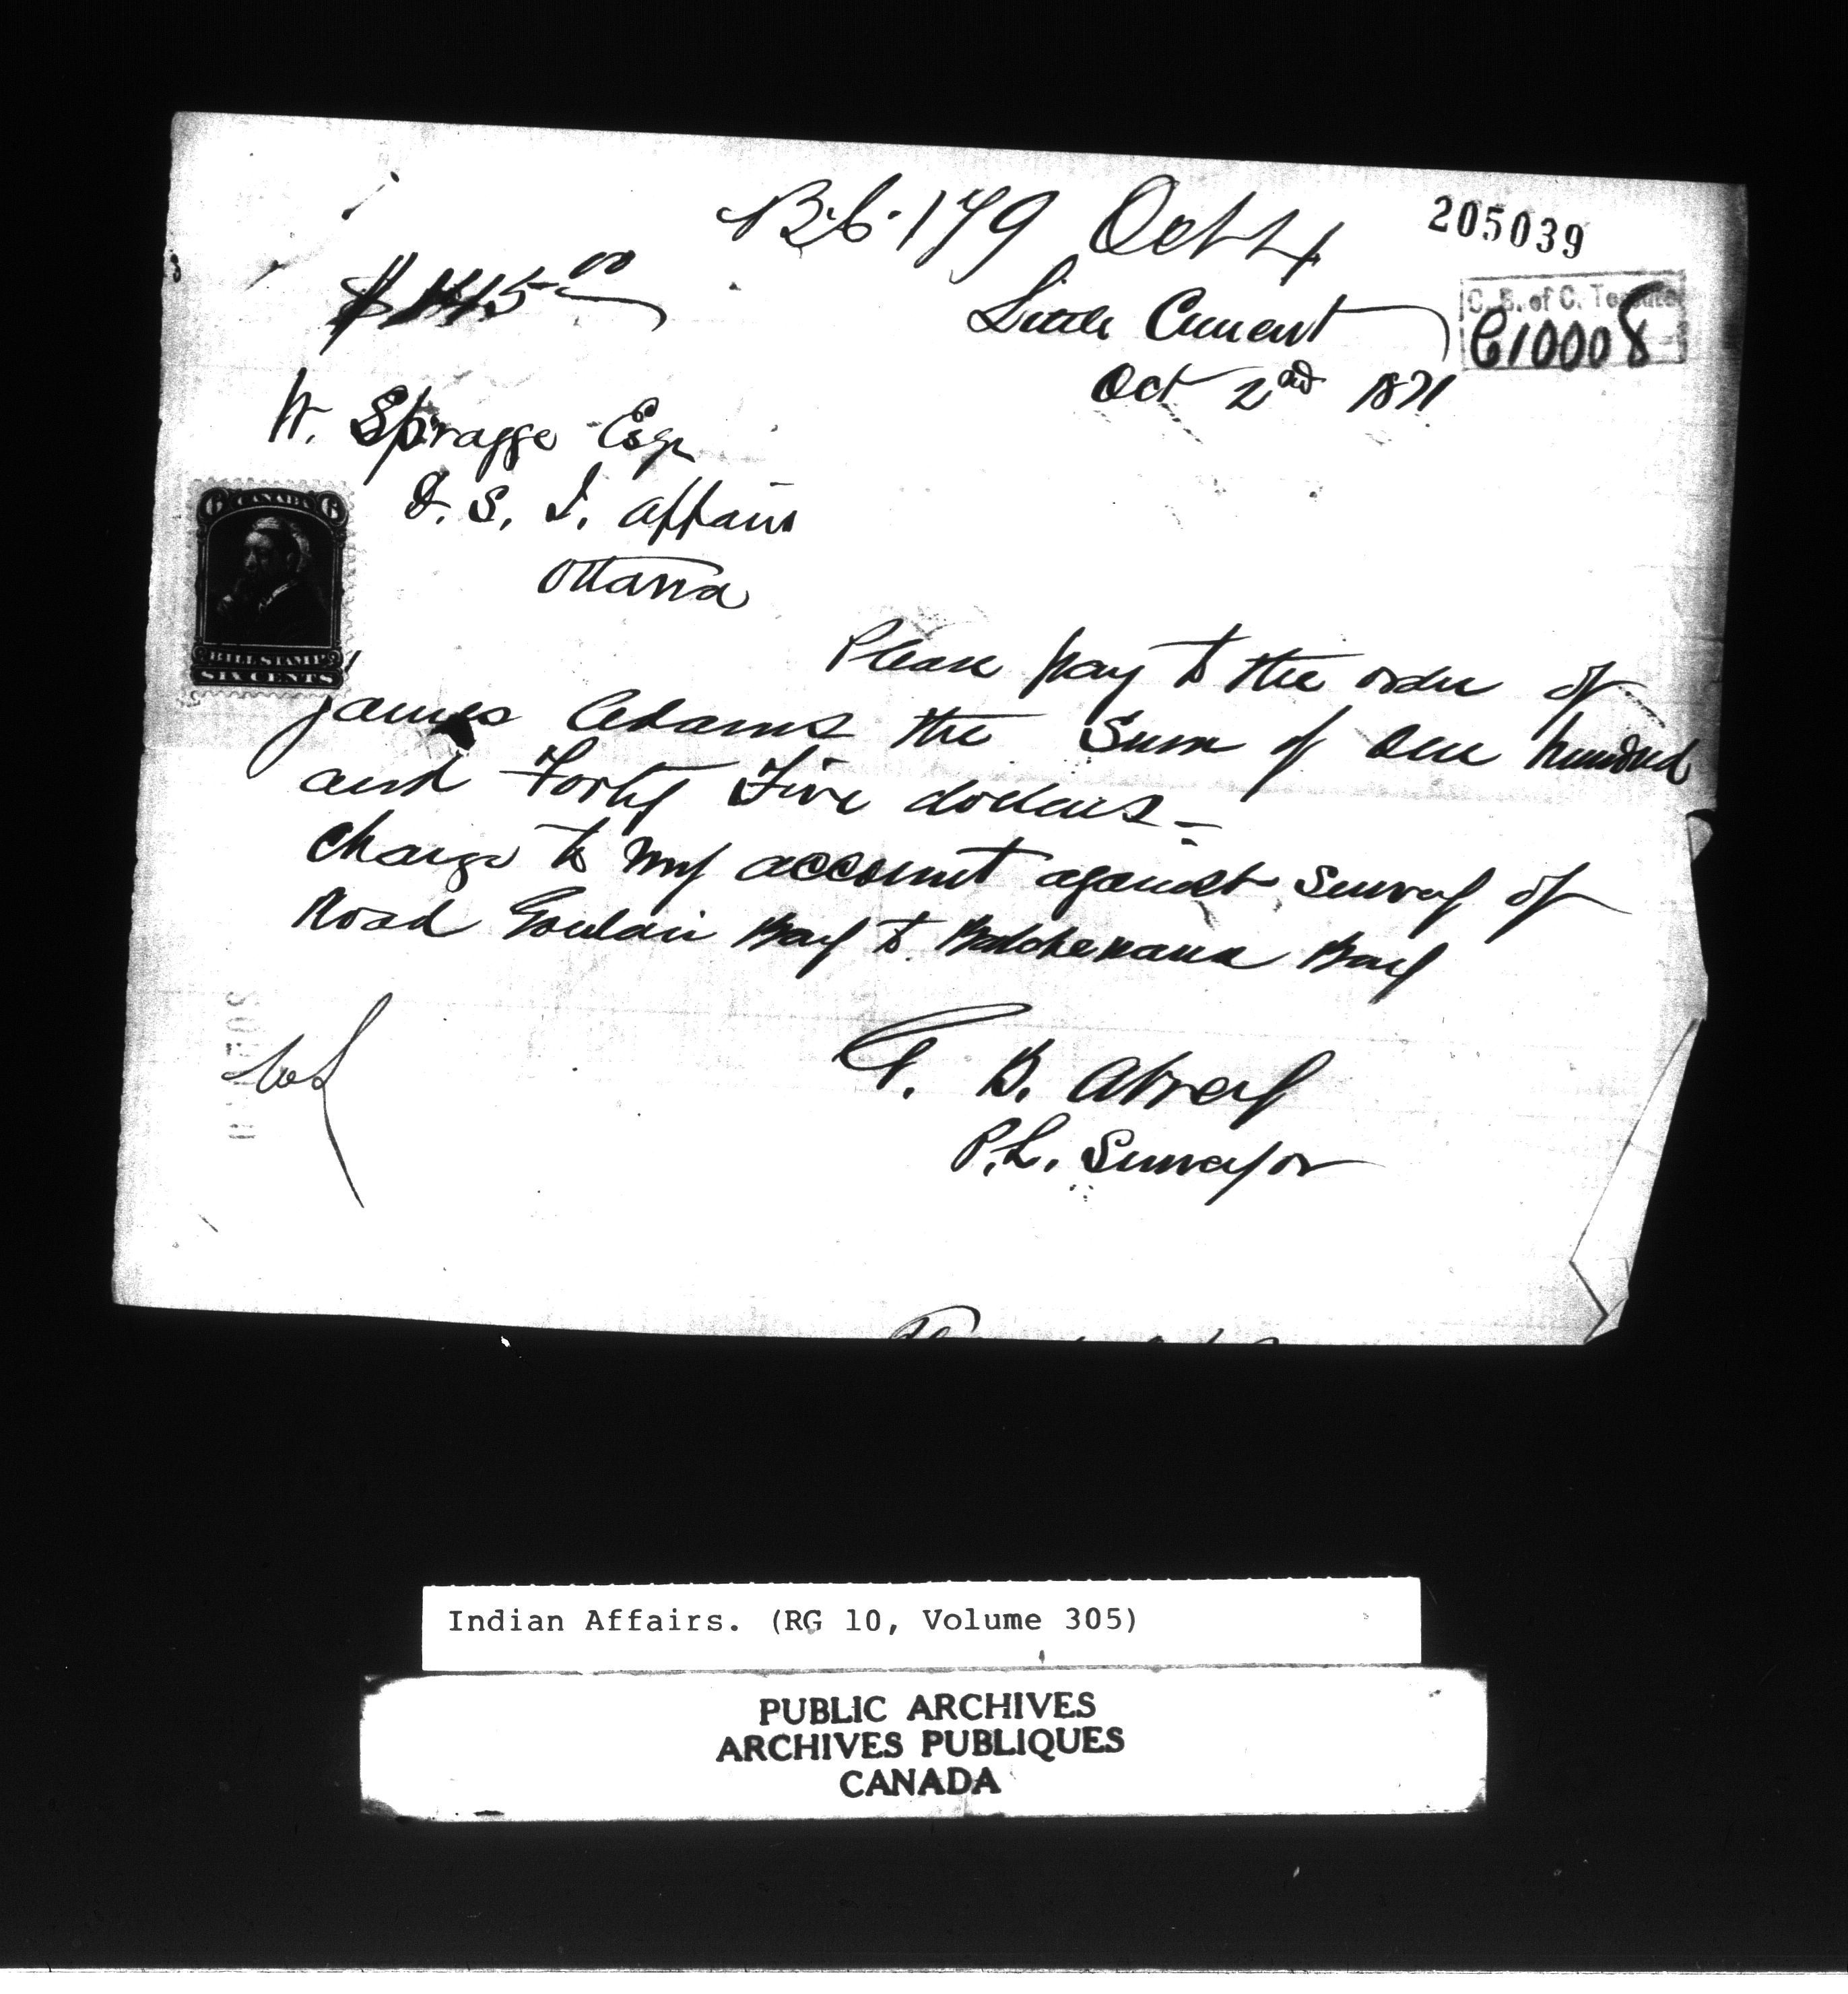 B.C. 179 Oct 4
205039
$145.00
Little Current
C. B. of C. Toronto
C10008
Oct 2nd 1871
W. Spragge Esqr
D. S. I. Affairs
Ottawa
6 CANADA 6
BILL STAMP
SIX CENTS
Please pay to the order of
James Adams the Sum of One hundred
and Forty Five dollars
Charge to my account against Survey of
Road Goulais Bay to Batchewana Bay
G. B. Abrey
P.L. Surveyor
Indian Affairs. (RG 10, Volume 305)
PUBLIC ARCHIVES
ARCHIVES PUBLIQUES
CANADA